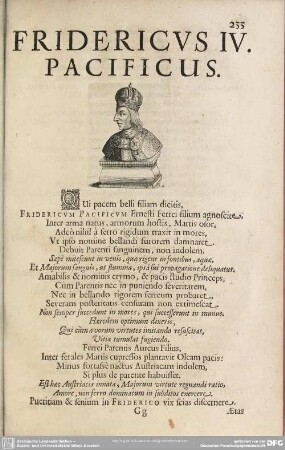 255
FRIDERICVS IV.
PACIFICUS.
QUi pacem belli filiam dicitis,
FRIDERICVM PACIFICVM Ernesti Ferrei filium agnoscite.
Inter arma natus, armorum hostis, Martis osor,
Adeò nihil à ferro rigidum traxit in mores,
Ut ipso nomine bellandi furorem damnaret.
Debuit Parenti sanguinem, non indolem.
Sæpè mitescunt in venis, quæ rigent in fontibus, aquæ.
Et Majorum sanguis, ut flumina, ipsâ sui propagatione defæcatur.
Amabilis & nominis etymo, & pacis studio Princeps,
Cum Parentis nec in puniendo severitatem,
Nec in bellando rigorem ferreum probaret.
Severam posteritatis censuram non extimescat.
Non semper succedunt in mores, qui successerunt in munus.
Heredem optimum dixeris,
Qui cùm avorum virtutes imitando resuscitat,
Vitia tumulat fugiendo.
Ferrei Parentis Aureus Filius,
Inter ferales Martis cupressos plantavit Oleam pacis:
Minus fortasse nactus Austriacam indolem,
Si plus de parente habuisset.
Est hæc Austriacis innata, Majorum virtute regnandi ratio,
Amore, non ferro dominatum in subditos exercere.
Pueritiam & senium in FRIDERICO vix scias discernere.
Gg
Ætas